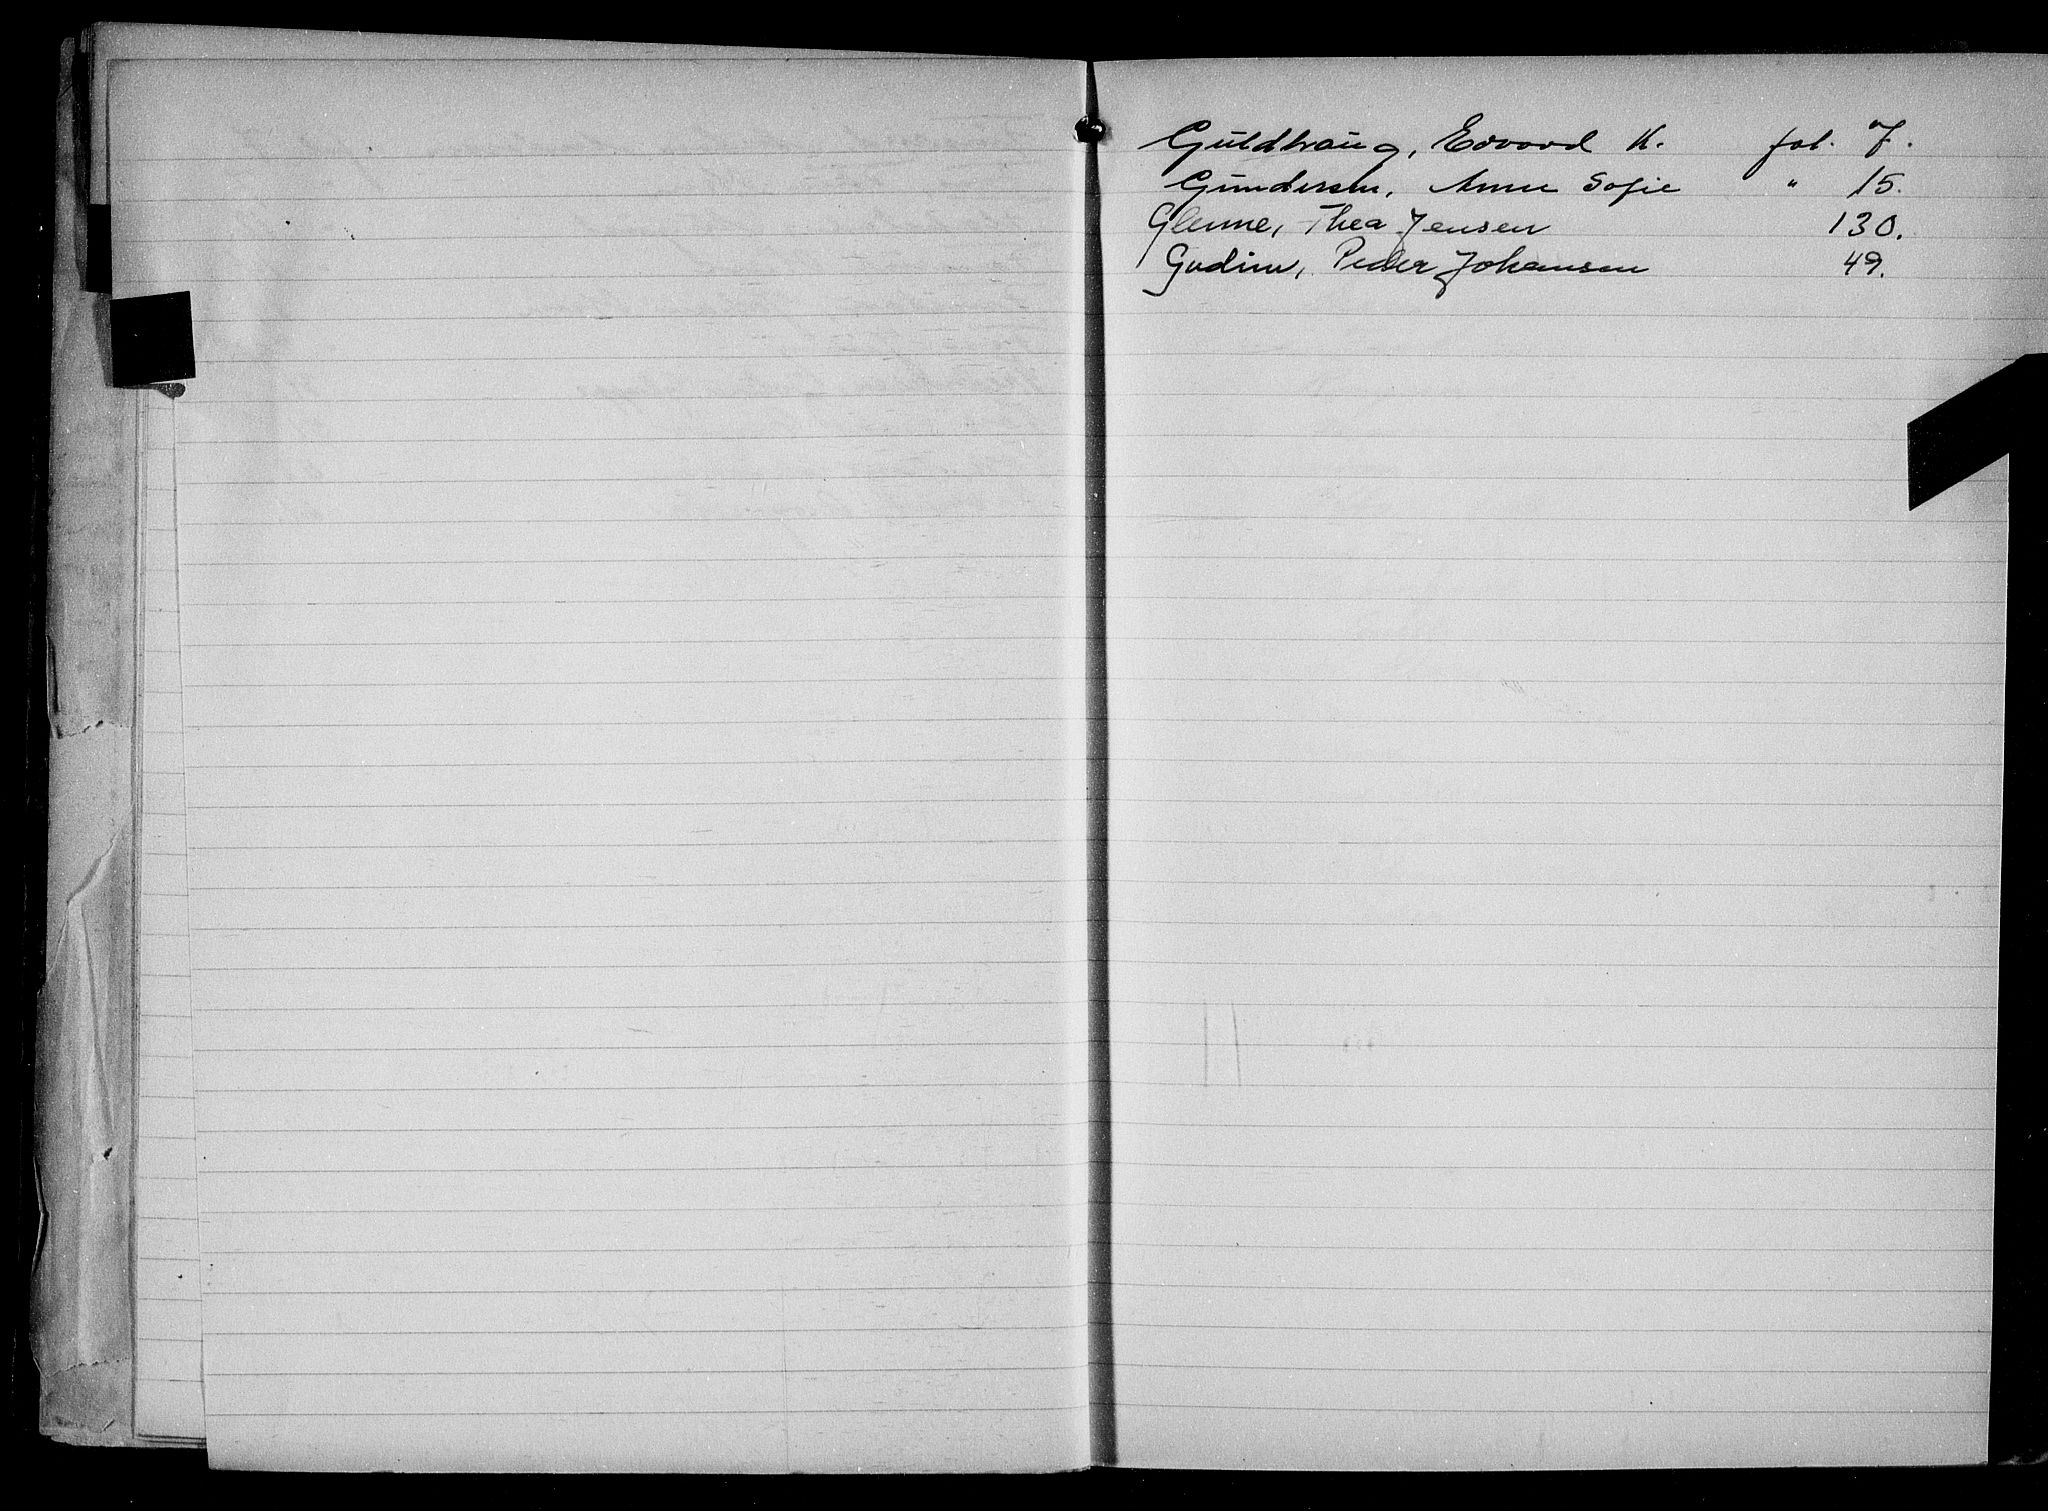 Guldhaug, Edvard K. fol. 7.
Gundersen, Anne Sofie " 15.
Glenne, Thea Jensen 130.
Gudim, Peder Johansen 49.